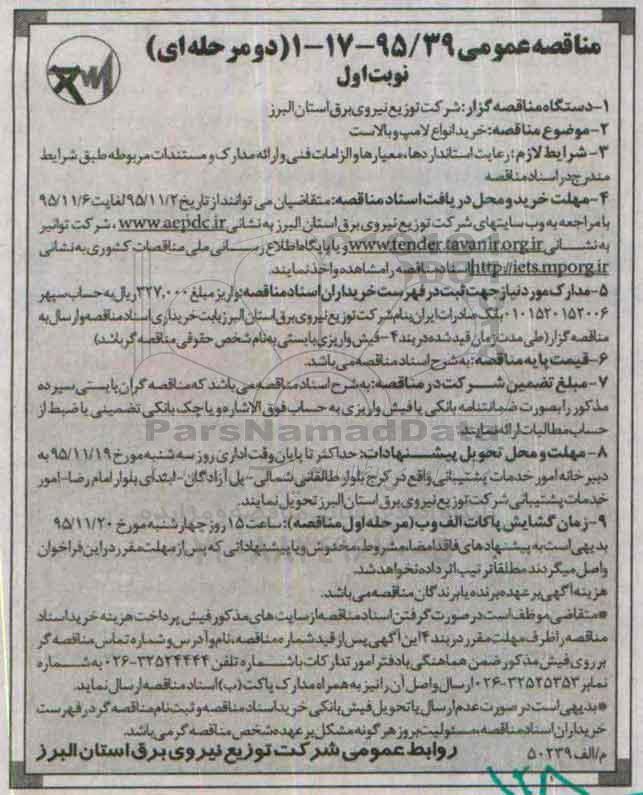 مناقصه عمومی ۹۵/۳۹-۱۷-۱-(دو مرحله ای)
نوبت اول
۱-دستگاه مناقصه گزار: شرکت توزیع نیروی برق استان البرز
۲-موضوع مناقصه: خرید انواع لامپ و بالاست
۳- شرایط لازم: رعایت استانداردها، معیارها و الزامات فنی و ارائه مدارک و مستندات مربوطه طبق شرایط
مندرج در اسناد مناقصه
۴- مهلت خرید و محل دریافت اسناد مناقصه: متقاضیان می توانند از تاریخ ۹۵/۱۱/۲ لغایت ۹۵/۱۱/۶
با مراجعه به وب سایتهای شرکت توزیع نیروی برق استان البرز به نشانی www.aepdc.ir ، شرکت توانیر
به نشانی www.tender.tavanir.org.ir و یا پایگاه اطلاع رسانی ملی مناقصات کشوری به نشانی
http://iets.mporg.ir اسناد مناقصه را مشاهده و اخذ نمایند.
۵-مدارک مورد نیاز جهت ثبت در فهرست خریداران اسناد مناقصه: واریز مبلغ ۳۲۷,۰۰۰ ریال به حساب سپهر
۰۱۰۱۵۲۰۱۵۲۰۰۶ بانک صادرات ایران بنام شرکت توزیع نیروی برق استان البرز بابت خریداری اسناد مناقصه و ارسال به
مناقصه گزار (طی مدت زمان قید شده در بند ۴-فیش واریزی بایستی به نام شخص حقوقی مناقصه گر باشد)
۶-قیمت پایه مناقصه: به شرح اسناد مناقصه می باشد.
۷- مبلغ تضمین شرکت در مناقصه: به شرح اسناد مناقصه می باشد که مناقصه گران بایستی سپرده
مذکور را بصورت ضمانتنامه بانکی یا فیش واریزی به حساب فوق الاشاره و یا چک بانکی تضمینی یا ضبط از
حساب مطالبات ارائه نمایند.
ParsNamadData
۸- مهلت و محل تحویل پیشنهادات: حداکثر تا پایان وقت اداری روز سه شنبه مورخ ۹۵/۱۱/۱۹ به
دبیر خانه امور خدمات پشتیبانی واقع در کرج بلوار طالقانی شمالی-پل آزادگان-ابتدای بلوار امام رضا-امور
خدمات پشتیبانی شرکت توزیع نیروی برق استان البرز تحویل نمایند.
۹-زمان گشایش پاکات الف و ب (مرحله اول مناقصه): ساعت ۱۵ روز چهارشنبه مورخ ۹۵/۱۱/۲۰
بدیهی است به پیشنهادهای فاقد امضاء، مشروط، مخدوش و یا پیشنهاداتی که پس از مهلت مقرر در این فراخوان
واصل میگردند مطلقا ترتیب اثر داده نخواهد شد.
هزینه آگهی بر عهده برنده یا برندگان مناقصه می باشد.
*متقاضی موظف است در صورت گرفتن اسناد مناقصه از سایت های مذکور فیش پرداخت هزینه خرید اسناد
مناقصه را ظرف مهلت مقرر در بند ۴ این آگهی پس از قید شماره مناقصه، نام و آدرس و شماره تماس مناقصه گر
بر روی فیش مذکور ضمن هماهنگی با دفتر امور تدارکات با شماره تلفن ۳۲۵۲۴۴۴۴-۰۲۶ به شماره
نمابر ۳۲۵۲۵۳۵۳-۰۲۶ ارسال و اصل آن را نیز به همراه مدارک پاکت (ب) اسناد مناقصه ارسال نماید.
*بدیهی است در صورت عدم ارسال یا تحویل فیش بانکی خرید اسناد مناقصه و ثبت نام مناقصه گر در فهرست
خریداران اسناد مناقصه، مسئولیت بروز هر گونه مشکل بر عهده شخص مناقصه گر می باشد.
روابط عمومی شرکت توزیع نیروی برق استان البرز
م/الف ۵۰۲۳۹